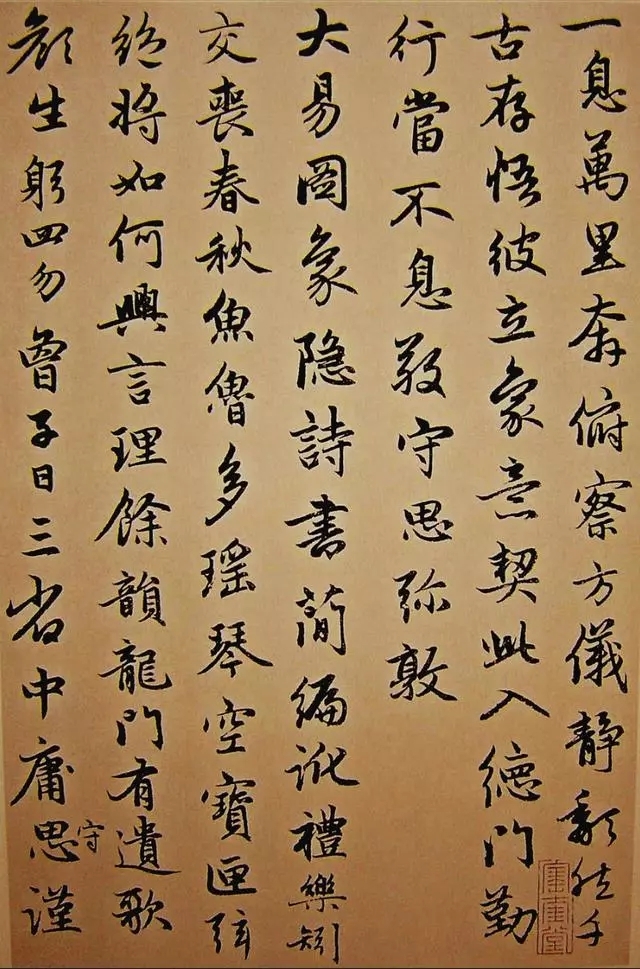 一息萬里奔俯察方儀靜頽然千
古存悟彼立象意契此入德門勤
行當不息敬守思弥敦
大易圖象隐詩書簡編訛禮樂矧
交喪春秋魚魯多瑶琴空寶匣弦
絶將如何興言理餘韻龍門有遺歌
顔生躬四勿曾子日三省中庸思謹
守